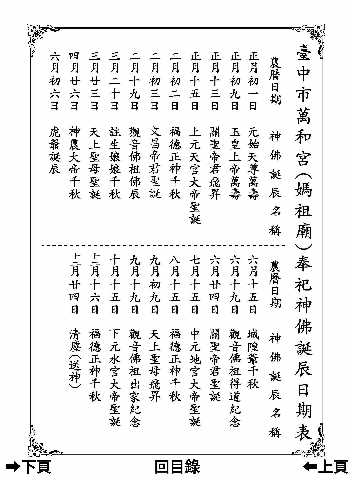 臺中市萬和宮(媽祖廟)奉祀神佛誕辰日期表
農曆日期 神佛誕辰名稱
正月初一日 元始天尊萬壽
正月初九日 玉皇上帝萬壽
正月十三日 關聖帝君飛昇
正月十五日 上元天官大帝聖誕
二月初二日 福德正神千秋
二月初三日 文昌帝君聖誕
二月十九日 觀音佛祖佛辰
三月二十日 註生娘娘千秋
三月廿三日 天上聖母聖誕
四月廿六日 神農大帝千秋
六月初六日 虎爺誕辰
農曆日期 神佛誕辰名稱
六月十五日 城隍爺千秋
六月十九日 觀音佛祖得道紀念
六月廿四日 關聖帝君聖誕
七月十五日 中元地官大帝聖誕
八月十五日 福德正神千秋
九月初九日 天上聖母飛昇
九月十九日 觀音佛祖出家紀念
十月十五日 下元水官大帝聖誕
十二月十六日 福德正神千秋
十二月廿四日 清塵(送神)
➡下頁 回目錄 ⬅上頁